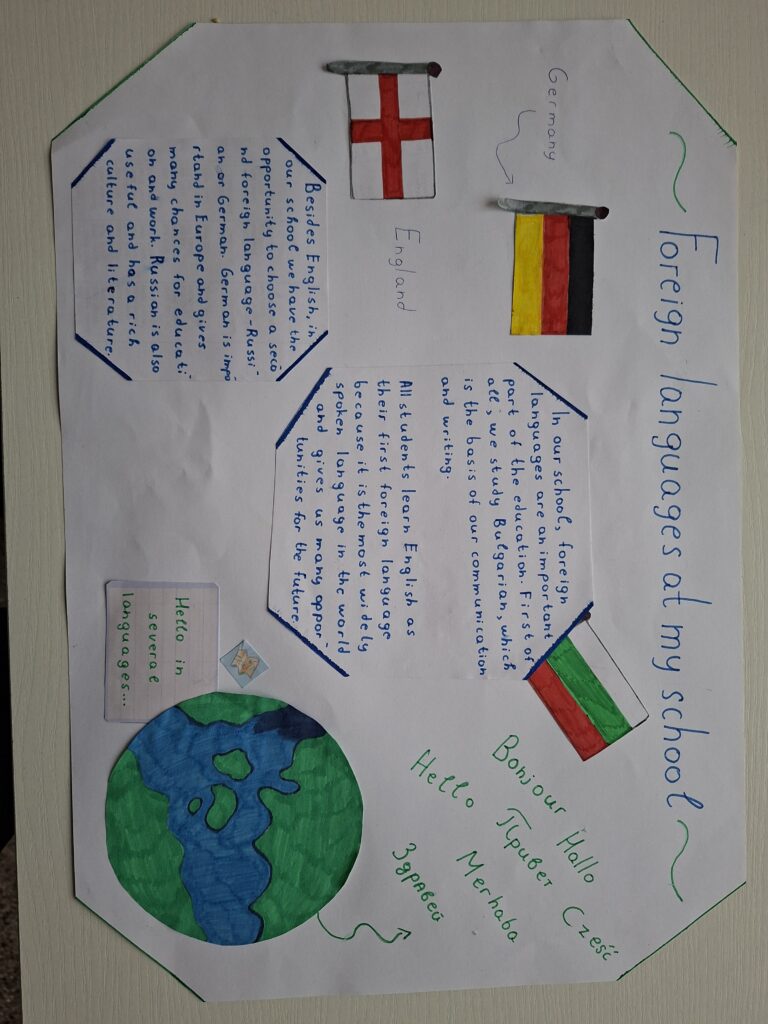 ~ Foreign languages at my school ~
Germany
England
In our schools, foreign
languages are an important
part of the education. First of
all, we study Bulgarian, which
is the basis of our communication
and writing.
All students learn English as
their first foreign language
because it is the most widely
spoken language in the world
and gives us many oppor-
tunities for the future.
Besides English, in
our school we have the
opportunity to choose a seco
nd foreign language - Russi
an or German. German is impo
rtand in Europe and gives
many chances for educati
on and work. Russian is also
useful and has a rich
culture and literature.
Bonjour Hallo
Hello Привет Cześć
Merhaba
Здравей
Hello in
several
languages...